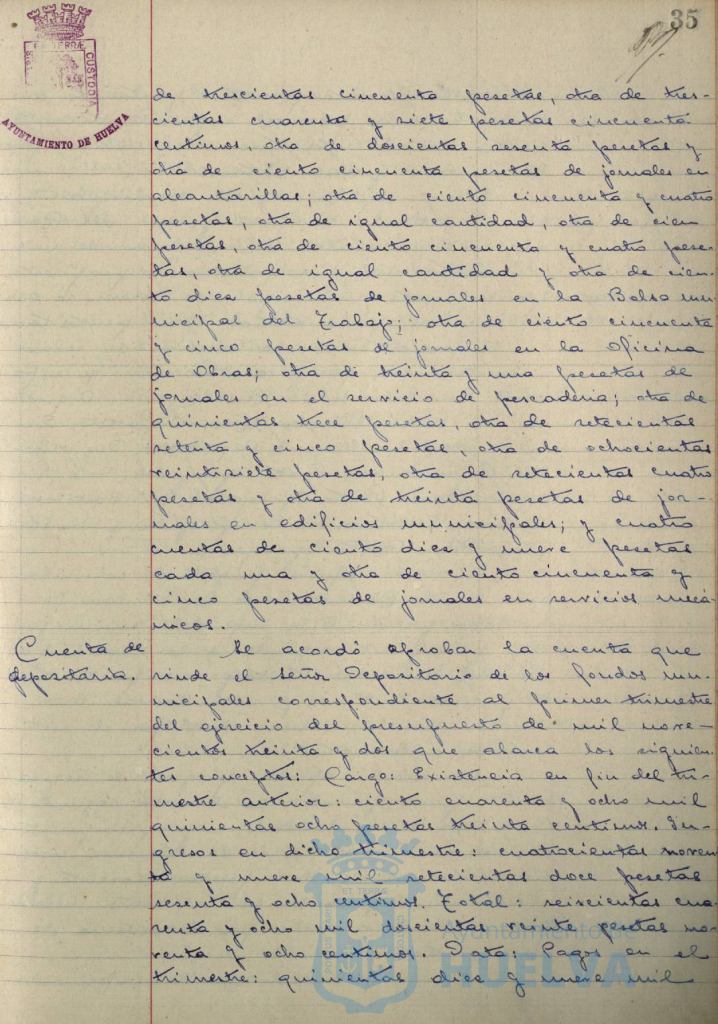 35
TERRÆ
CUSTODIA
AYUNTAMIENTO DE HUELVA
de trescientas cincuenta pesetas, otra de tres-
cientas cuarenta y siete pesetas cincuenta
centimos, otra de doscientas sesenta pesetas y
otra de ciento cincuenta pesetas de jornales en
alcantarillas; otra de ciento cincuenta y cuatro
pesetas, otra de igual cantidad, otra de cien
pesetas, otra de ciento cincuenta y cuatro pese-
tas, otra de igual cantidad y otra de cien-
to diez pesetas de jornales en la Bolsa mu-
nicipal del Trabajo; otra de ciento cincuenta
y cinco pesetas de jornales en la Oficina
de Obras; otra de treinta y una pesetas de
jornales en el servicio de pescaderia; otra de
quinientas trece pesetas, otra de setecientas
setenta y cinco pesetas, otra de ochocientas
veintisiete pesetas, otra de setecientas cuatro
pesetas y otra de treinta pesetas de jor-
nales en edificios municipales; y cuatro
cuentas de ciento diez y nueve pesetas
cada una y otra de ciento cincuenta y
cinco pesetas de jornales en servicios mecá-
nicos.
Cuenta de
depositaria.
Se acordó aprobar la cuenta que
rinde el señor Depositario de los fondos mu-
nicipales correspondiente al primer trimestre
del ejercicio del presupuesto de mil nove-
cientos treinta y dos que abarca los siguien-
tes conceptos: Cargo: Existencia en fin del tri-
mestre anterior: ciento cuarenta y ocho mil
quinientas ocho pesetas treinta centimos. In-
gresos en dicho trimestre: cuatrocientas noven
ta y nueve mil setecientas doce pesetas
sesenta y ocho centimos. Total: seiscientas cua-
renta y ocho mil doscientas veinte pesetas no-
venta y ocho centimos. Data: Pagos en el
trimestre: quinientas diez y nueve mil
ET TERRÆ
Ayuntamiento
HUELVA